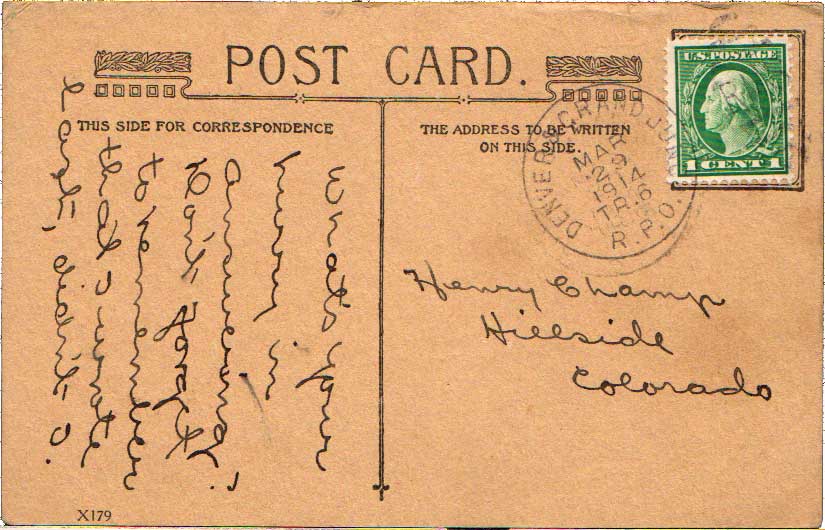 POST CARD.
THIS SIDE FOR CORRESPONDENCE
THE ADDRESS TO BE WRITTEN
ON THIS SIDE.
U.S. POSTAGE
1 CENT 1
DENVER & GRAND JUNC
MAR
29
1914
TR. 6
R.P.O.
What's your
hurry in
answering?
Don't forget
to remember
that I wrote
last, didn't I?
Henry Champ
Hillside
Colorado
X179